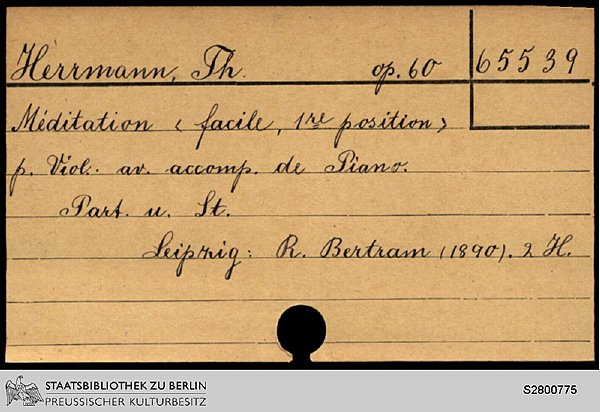 Herrmann, Th. op. 60 65539
Méditation < facile, 1re position >
p. Viol. av. accomp. de Piano.
Part. u. St.
Leipzig: R. Bertram (1890). 2 H.
STAATSBIBLIOTHEK ZU BERLIN
PREUSSISCHER KULTURBESITZ
S2800775